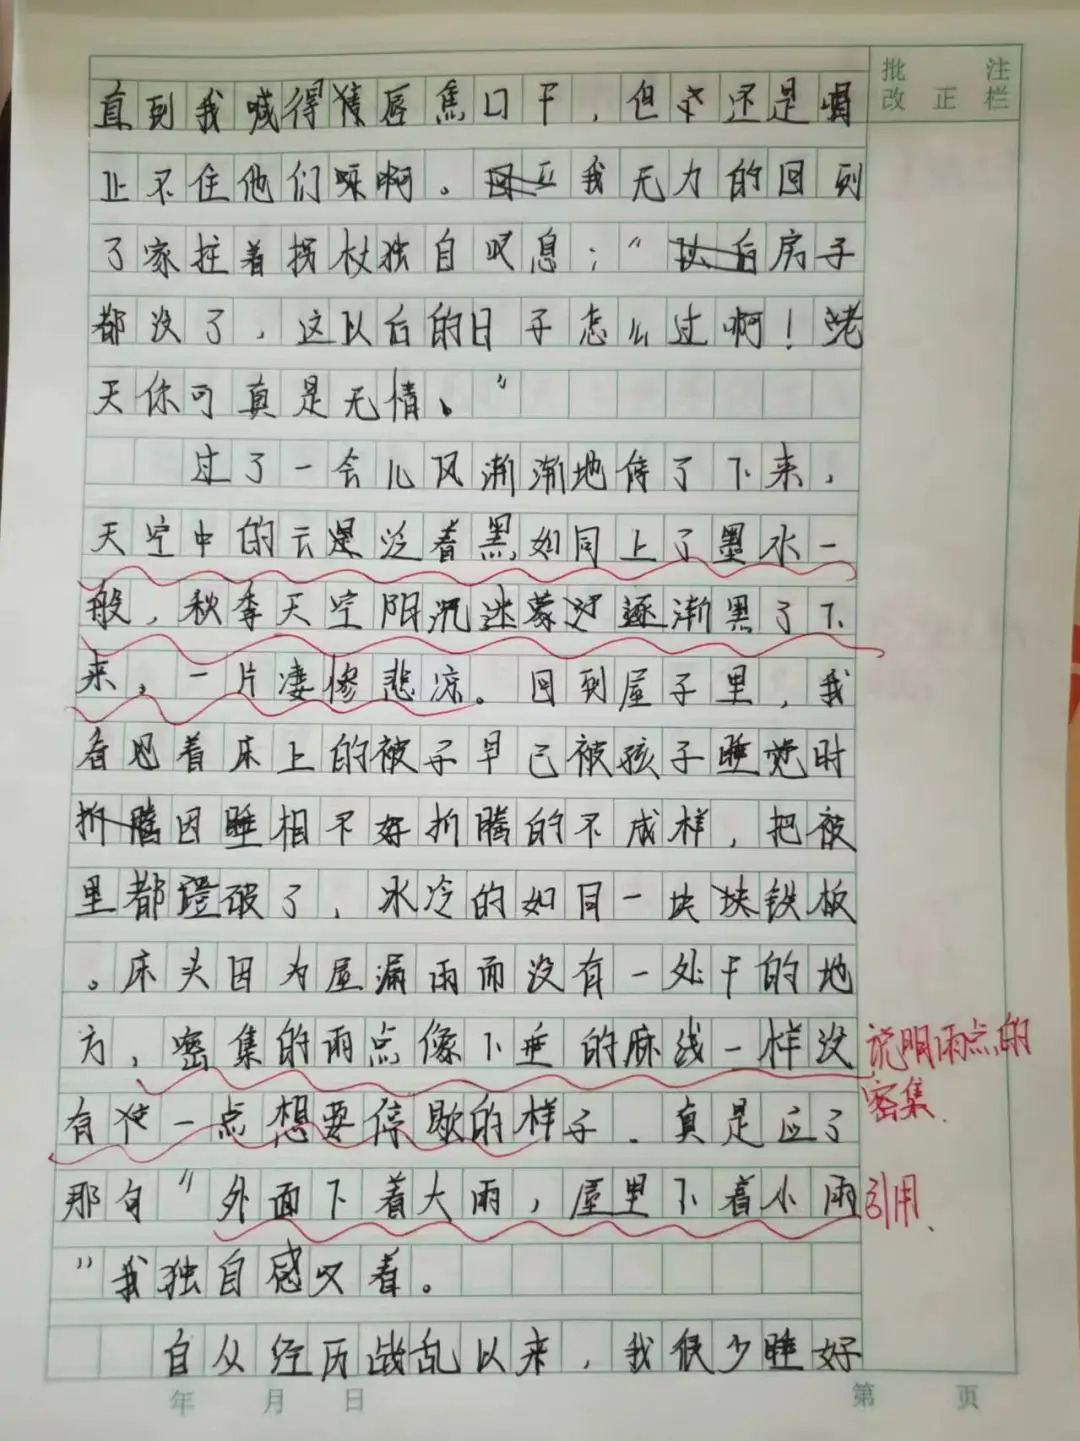 批 注
改 正 栏
直到我喊得唇焦口干，但还是
止不住他们呀啊。我无力的回到
了家拄着拐杖独自叹息；“房子
都没了，这以后的日子怎么过啊！老
天你可真是无情。”
过了一会儿风渐渐地停了下来，
天空中的云是泛着黑如同上了墨水一
般，秋季天空阴沉迷蒙逐渐黑了下
来，一片凄惨悲凉。回到屋子里，我
看见着床上的被子早已被孩子睡觉时
因睡相不好折腾的不成样，把被
里都蹬破了，冰冷的如同一块块铁板
。床头因为屋漏雨而没有一处干的地
方，密集的雨点像下垂的麻线一样没
说明雨点的
密集、
有一点想要停歇的样子．真是应了
那句“外面下着大雨，屋里下着小雨
引用、
”我独自感叹着。
自从经历战乱以来，我很少睡好
年 月 日
第 页